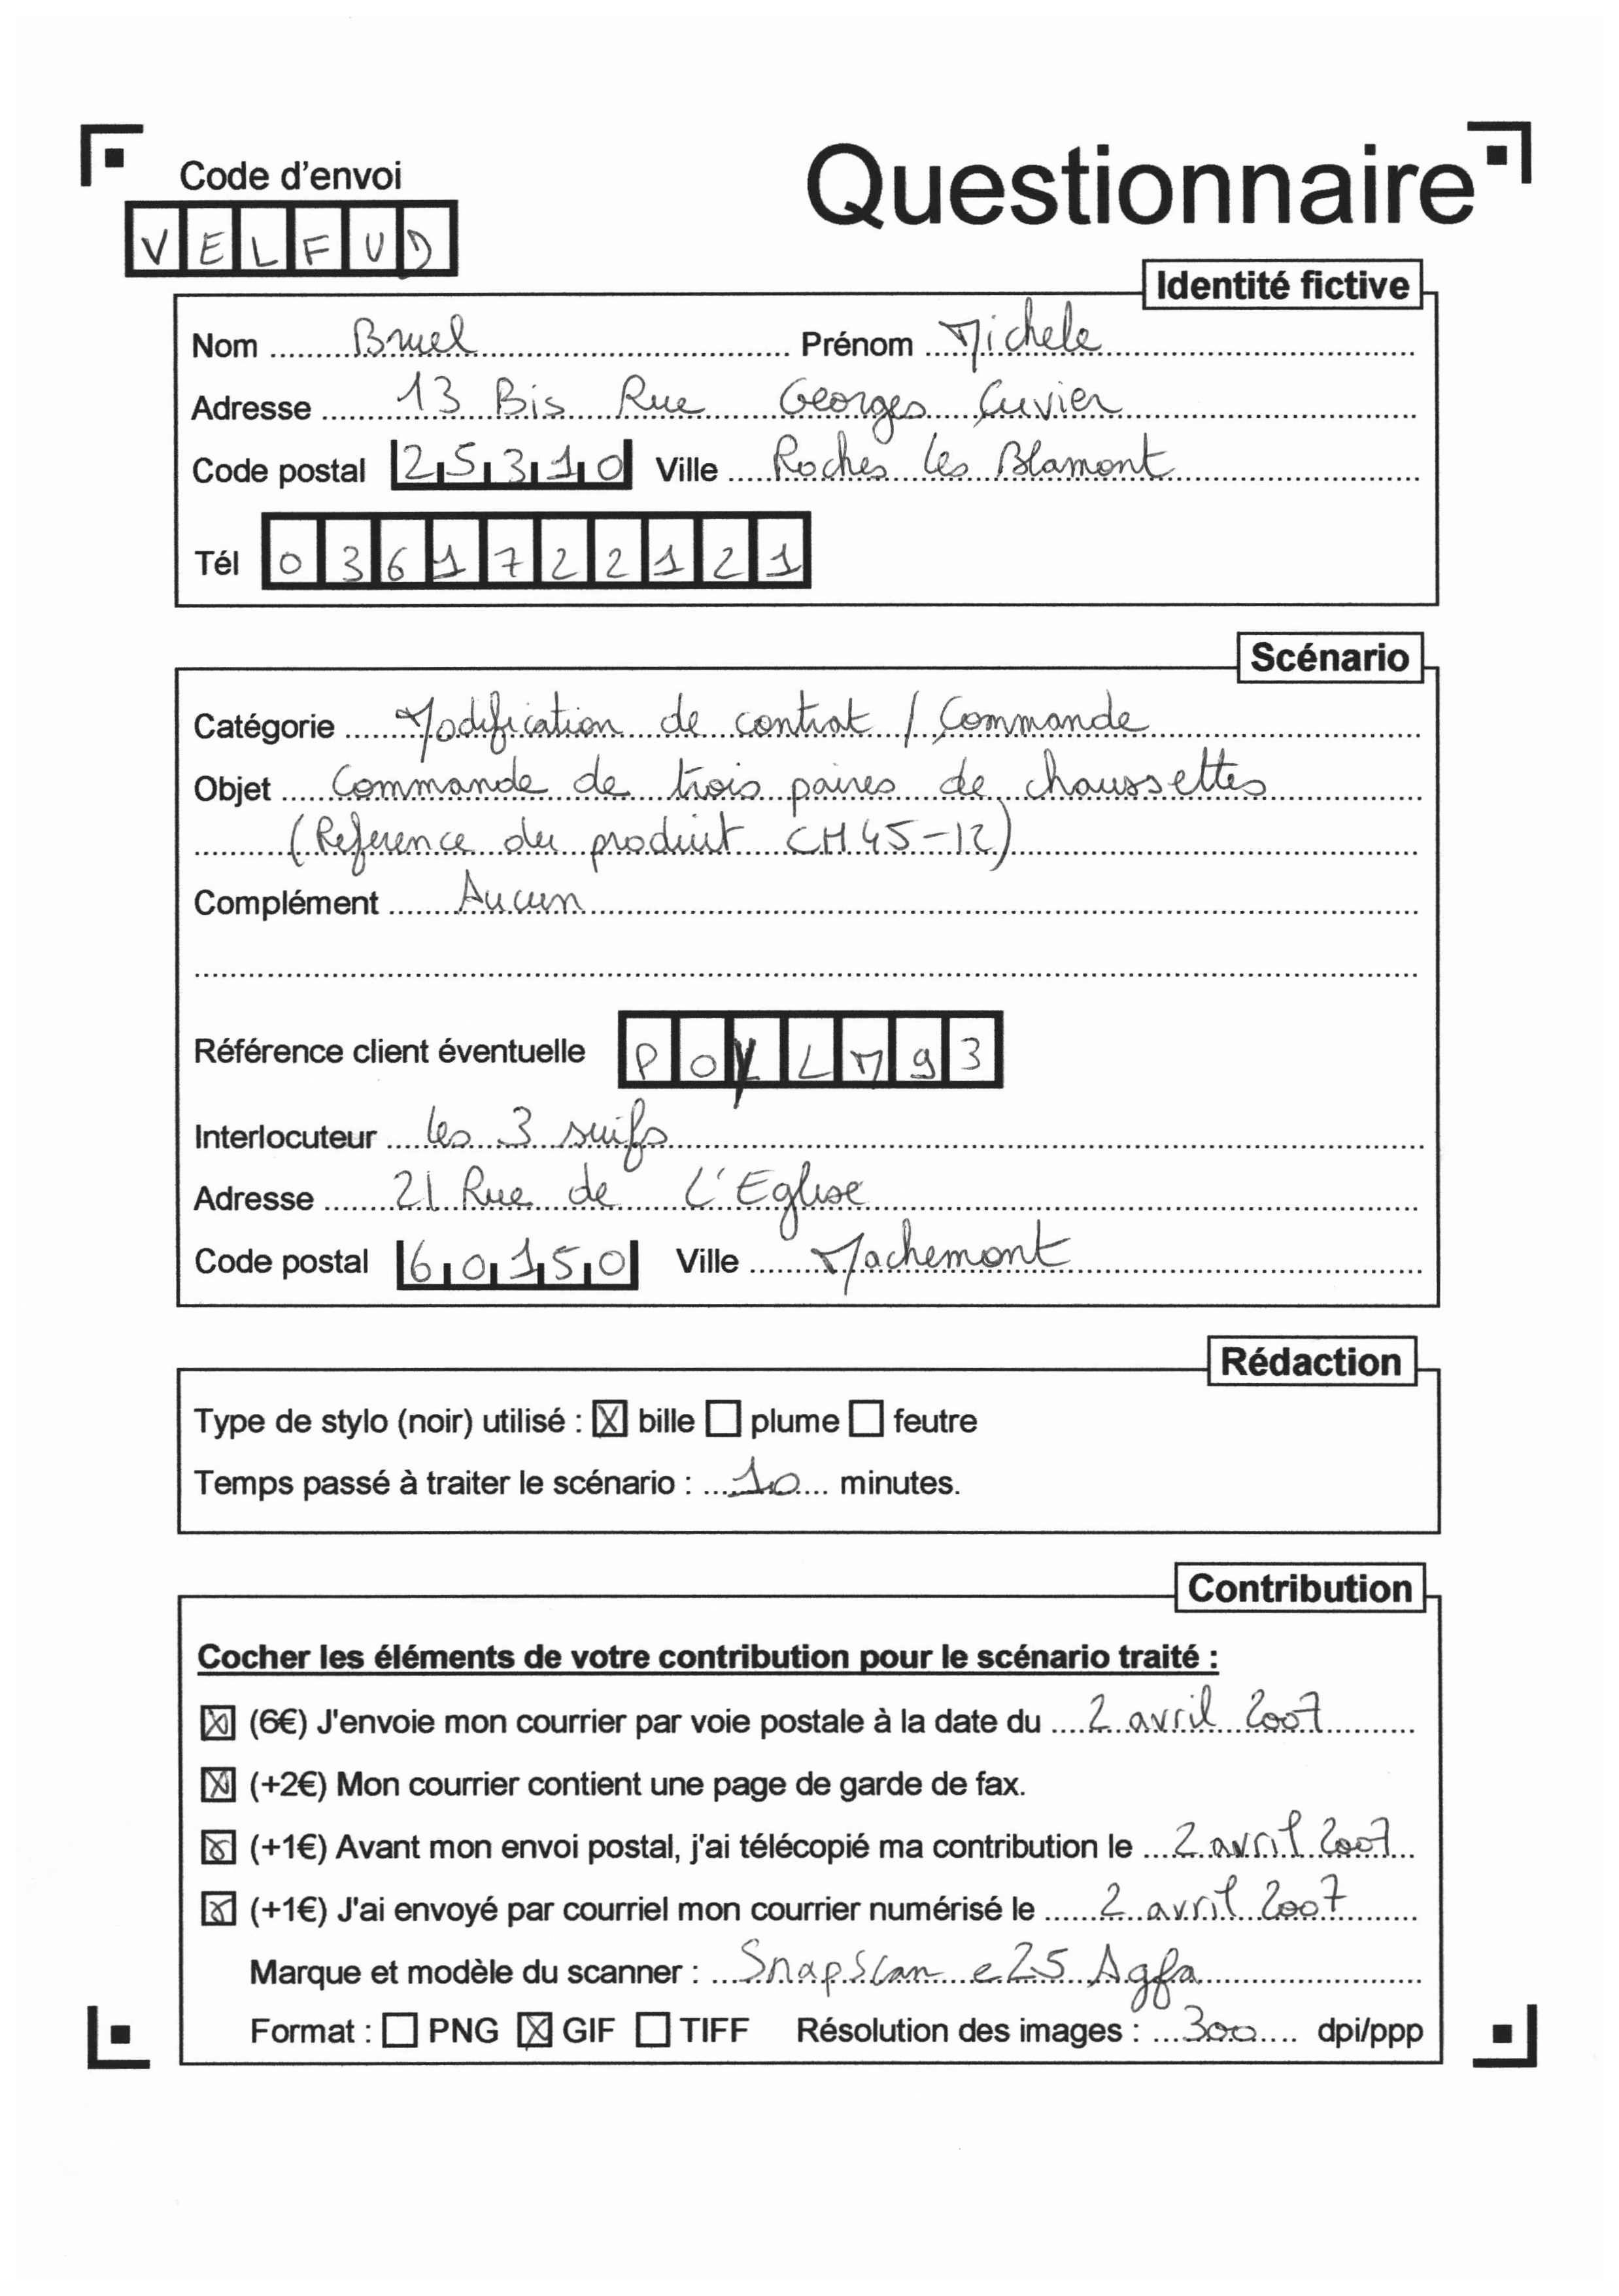 Code d'envoi
Questionnaire
VELFUD
Identité fictive
Nom Bruel Prénom Michele
Adresse 13 Bis Rue Georges Cuvier
Code postal 25310 Ville Roches les Blamont
Tél 0361722121
Scénario
Catégorie Modification de contrat / Commande
Objet Commande de trois paires de chaussettes
(Reference du produit CH45-12)
Complément Aucun
Référence client éventuelle POYLM93
Interlocuteur les 3 suifs
Adresse 21 Rue de L'Eglise
Code postal 60150 Ville Machemont
Rédaction
Type de stylo (noir) utilisé : ☒ bille ☐ plume ☐ feutre
Temps passé à traiter le scénario : 10 minutes.
Contribution
Cocher les éléments de votre contribution pour le scénario traité :
☒ (6€) J'envoie mon courrier par voie postale à la date du 2 avril 2007
☒ (+2€) Mon courrier contient une page de garde de fax.
☒ (+1€) Avant mon envoi postal, j'ai télécopié ma contribution le 2 avril 2007
☒ (+1€) J'ai envoyé par courriel mon courrier numérisé le 2 avril 2007
Marque et modèle du scanner : SnapScan e25 Agfa
Format : ☐ PNG ☒ GIF ☐ TIFF Résolution des images : 300 dpi/ppp